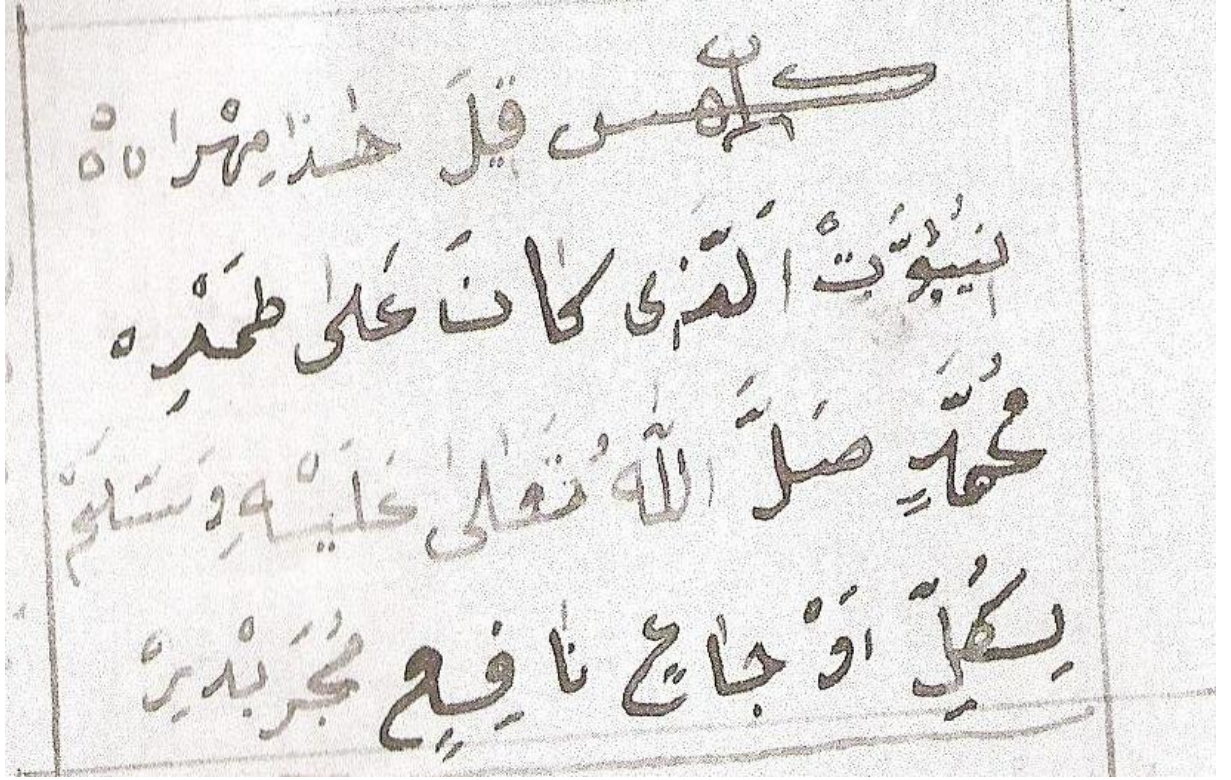 قِيلَ هٰذَا مِهْرَابَةْ
اَلَّذِى كَانَ عَلٰى
مُحَمَّدٍ صَلَّ اللّٰهُ تَعَلٰى عَلَيْهِ وَسَلَّمَ
بِكُلِّ اَوْجَاعٍ نَافِعٍ مُجَرَّبْدِيرْ